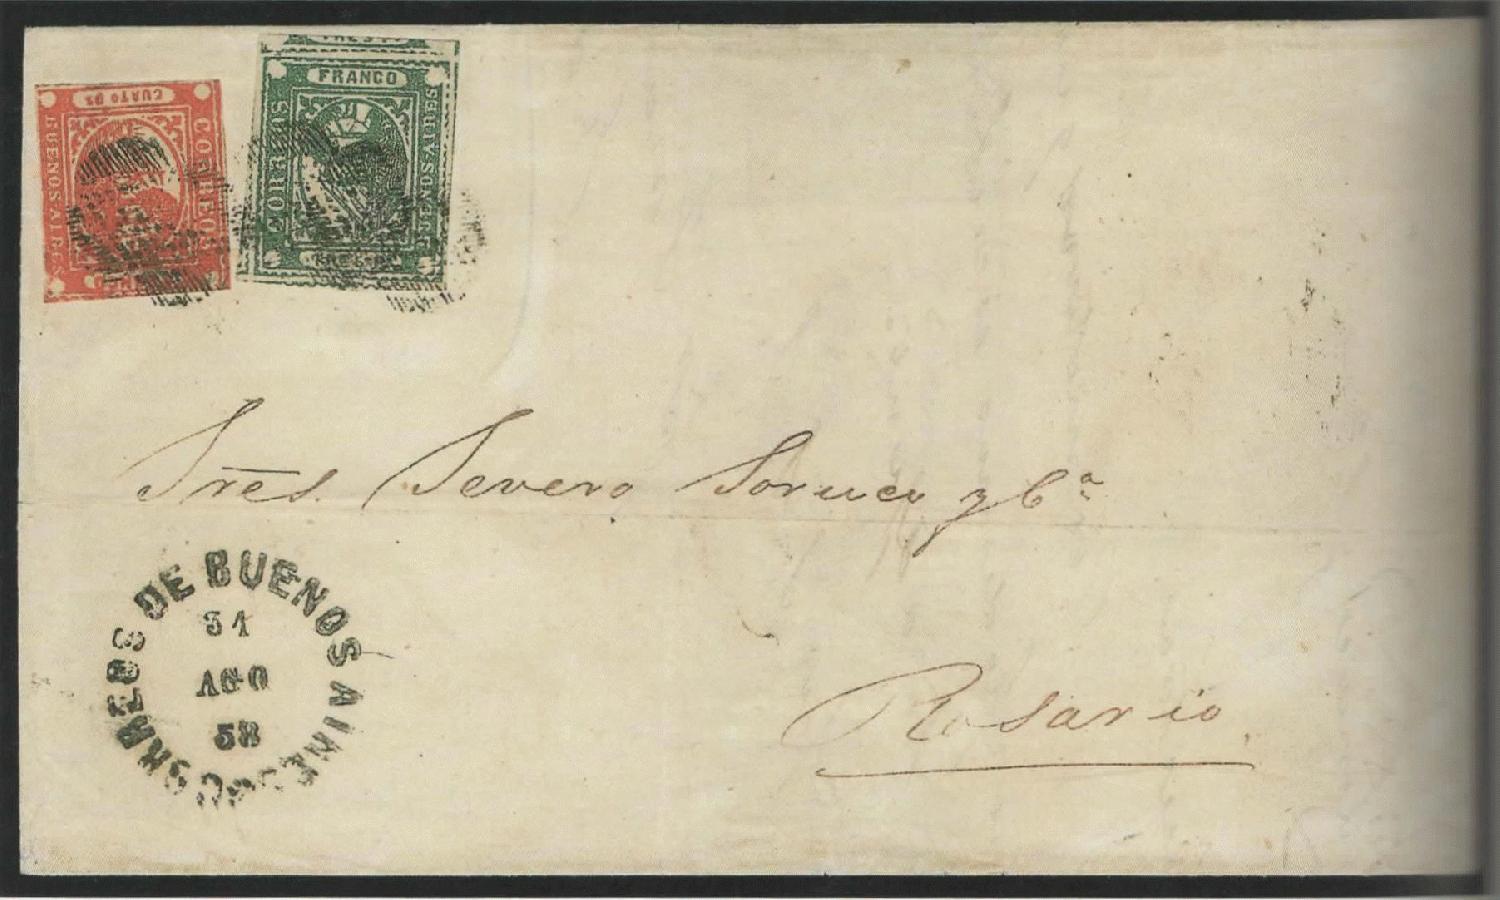 CUATO Ps
CORREOS
BUENOS AIRES
FRANCO
CORREOS
BUENOS AIRES
TRES Ps
Sres. Severo Soruco y Ca
Rosario
CORREOS DE BUENOS AIRES
31
AGO
58